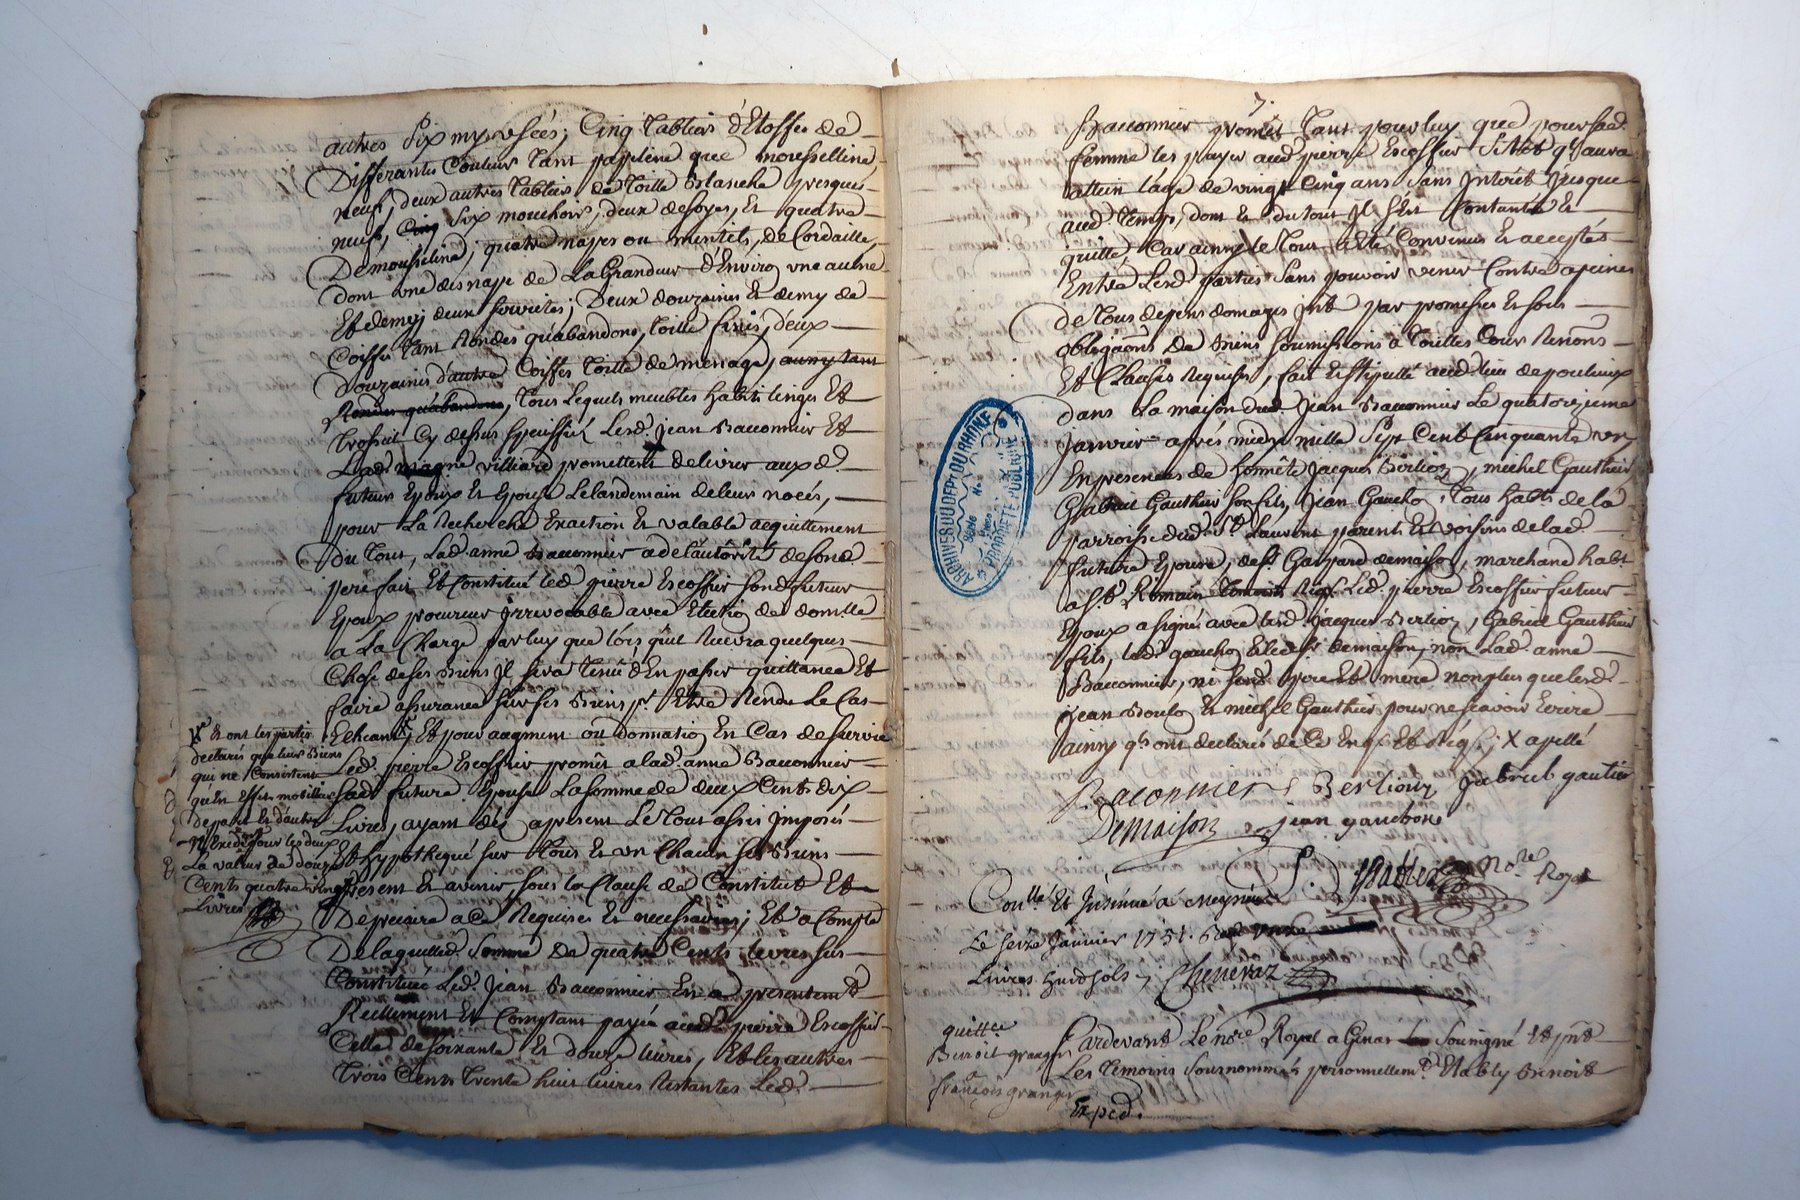 autres Six my usées; Cinq Tabliers d'Etoffes de
Differantes Couleurs Tant papeline que mousselline
neuf, deux autres Tabliers de Toille Blanche presques
neuf, Cinq Six mouchoirs, deux de soyes, Et quatre
Demousseline; quatre napes ou mentels, de Cordaille,
dont une des nape de La Grandeur d'Enviro une aulne
Et demej deux serviettes; Deux douzaines Et demy de
Coiffes Tant Rondes qu'abandons, Toille fines, deux
Douzaines d'autre Coiffes Toille de menage, aussy tant
Rondes qu'abandons, Tous Lequels meubles habits linges Et
Trossel Cy dessus specifiés Lesd. Jean Baconnier Et
Lad. magne villiard promettent delivrer auxd.
futeurs Epoux Et Epouse Lelandemain deleurs noces,
pour La Recherche Exaction Et valable acquittement
du Tout, Lad. anne Baconnier a de l'authorité desond.
pere fait Et Constitué led. pierre Escoffier sond futeur
Epoux procureur irrevocable avec Electio de domlle
a La Charge par luy que lors qu'il Recevra quelques
Chose de ses Biens Il sera Tenu d'En passer quittance Et
faire assurance sur ses Biens pr. Etre Rendu Le Cas
Echeant, Et pour augment ou donnatio En Cas de survie
Led. pierre Escoffier promet a lad. anne Baconnier
sad. future Epouse La somme de deux Cents dix
Livres, ayant dés apresent Le Tout assis Imposé
Et hypothequé sur Tous Et un Chacun ses Biens
present Et avenir, sous la Clause de Constitut Et
De precaire a ce Requises Et necessaires; Et a Compte
Delaquelled. Somme De quatre Cents livres sus
Constituée Led. Jean Baconnier En a presentemt
Reellement Et Comptant payée aud. pierre Escoffier
Celle de soixante Et douze livres, Et les autres
Trois Cents Trente huit livres Restantes Led.
Et ont les parties
declarés que leurs Biens
qui ne Consistent
qu'En Effets mobilliaires
depart Et d'autre
n'Exede pour les deux
La valeur de douze
Cents quatre vingt
Livres
7.
Baconnier promet Tant pour luy que pour sad.
femme les payer aud. pierre Escoffier sitot ql aura
attein l'age de vingt Cinq ans sans Interet Jusque
aud. Temps, dont Et du tout Il s'Est Contanté Et
quitte, Car ainsy le Tout a Eté Convenus Et acceptés
Entre Lesd. parties sans pouvoir venir Contre a peines
De Tous depens domages Int par promesses Et sols
obligaons De Biens soumissions a Toutes Cours Renons
Et Clauses Requises, fait Et stipullé aud. lieu de pouleux
dans La maison dud. Jean Baconnier Le quatorzieme
Janvier aprés midy mille Sept Cent Cinquante un
En presences de honnête Jacques Berlion, michel Gauthier
Gabriel Gauthier son fils, Jean Gaucho, Tous habts de la
parroisse dud. St. Laurent parents Et voisins de lad.
future Epouse, de sr. Gaspard demaiso, marchand habt
a St. Romain Temoins Reqs. Led. pierre Escoffier futeur
Epoux a signé avec lesd. Jacques Berlion, Gabriel Gauthier
fils, led. gaucho Et led. sr. demaison, non Lad. anne
Baconnier, ni sesd. pere Et mere non plus que lesd.
Jean Boulo Et michel Gauthier pour ne scavoir Ecrire
ainsy qls ont declarés de Ce Enqs. Et Reqs. X apellé
Baconnier Berlioux Gabriel gautier
Demaison jean gauchon
Nore Royal
Conlle Et Insinué a Meyrieux
Le seize Janvier 1751. Reçu
Livres huit sols; Chenevaz
quittce
Benoit granger
françois granger
Pardevant Le nore Royal a Genas Sousigné Et pnt
Les Temoins sousnommés personnellemt Etably Benoit
Exped.
ARCHIVES DU DEPT DU RHONE
PROPRIETE PUBLIQUE